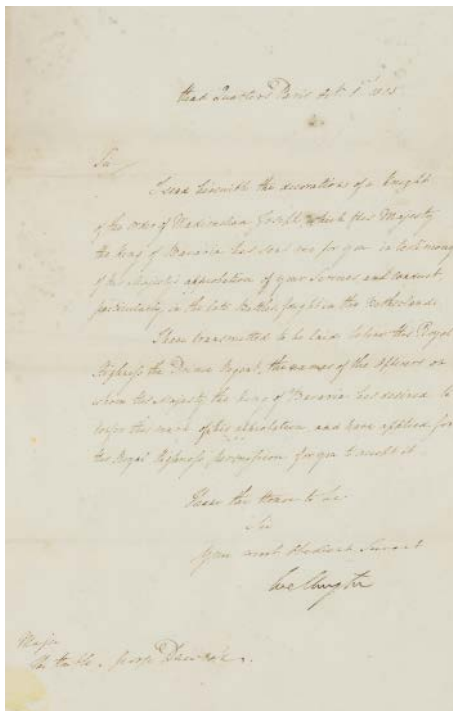 Head Quarters Paris Oct. 1st 1815
Sir
I send herewith the decorations of a Knight
of the order of Maximilian Joseph, which His Majesty
the King of Bavaria has sent me for you in testimony
of His Majesty's approbation of your services and conduct,
particularly in the late Battles fought in the Netherlands.
I have transmitted to be laid before His Royal
Highness the Prince Regent, the names of the officers on
whom His Majesty the King of Bavaria has desired to
confer this mark of his approbation, and have applied for
His Royal Highness' permission for you to accept it.
I have the Honor to be
Sir
Your most Obedient Servant
Wellington
Major